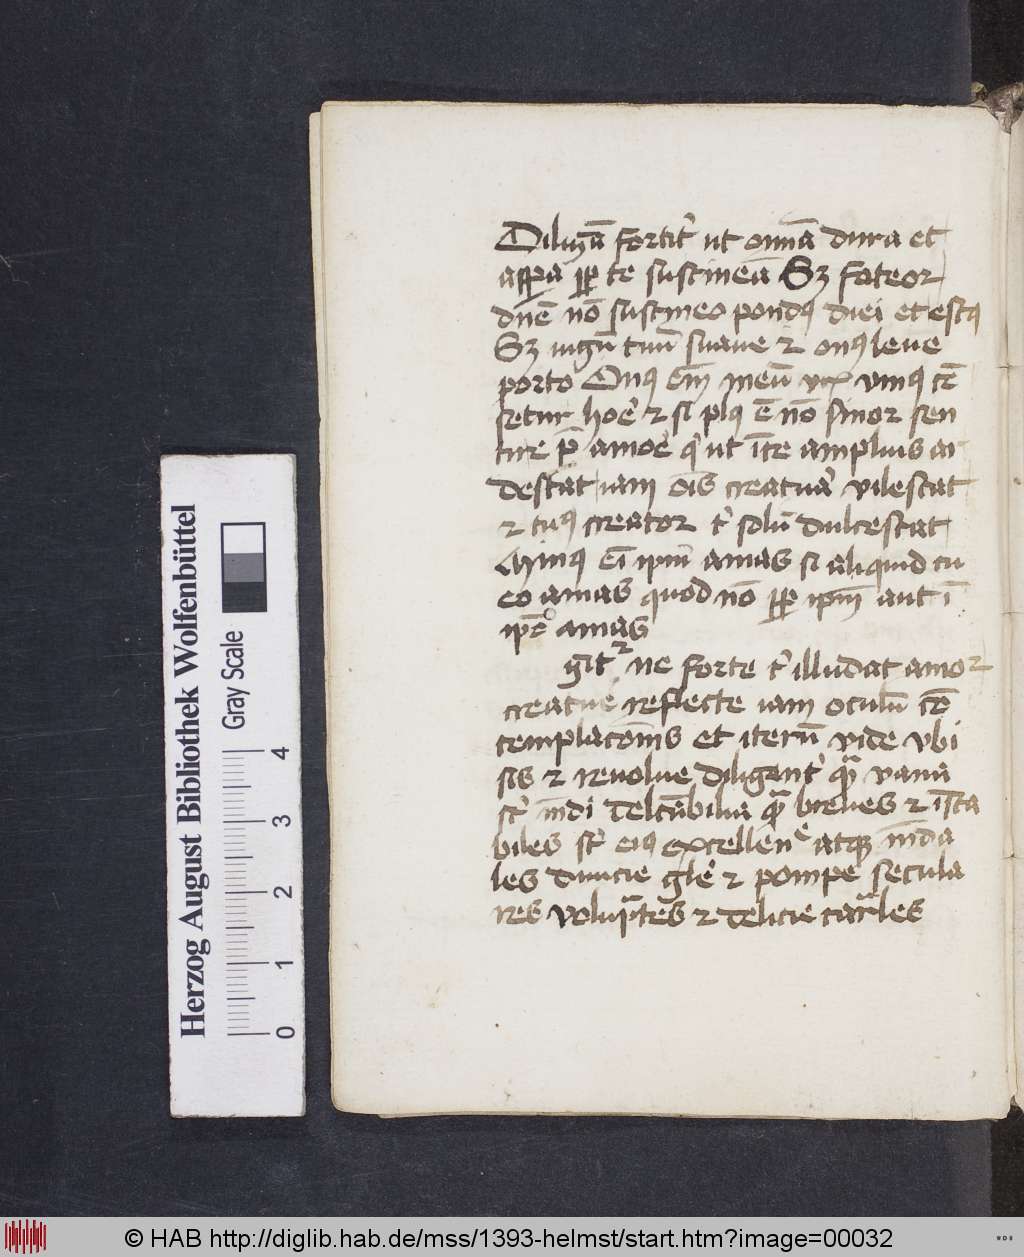 Diligā fortit᷑ ut om̄ia dura et
aspa ꝓp te sustineā Sꝫ fateor
dn̄e nō sustineo pondꝰ diei et estꝰ
Sꝫ iugū tuū suaue ⁊ onꝰ leue
porto Onꝰ em̄ meū vix vniꝰ
setur hoe᷑ ⁊ si plꝰ ē nō sinor sen
tire p̄ amoē ut amplius
oīs creatura᷑ vilescat
⁊ tuꝰ creator t᷑ solū dulcescat
Minꝰ em̄ ipm̄ amas si aliquid cū
eo amas quod nō ꝓp ipm̄ aut ī
ipo amas
git᷑ ne forte t᷑ illudat amor
creature reflecte iam oculū cō
templacōnis et iterū vide vbi
sis ⁊ reuolue diligent᷑ qᷓ vana
st᷑ mūdi delectabilia qᷓ breues ⁊ īsta
biles st᷑ eiꝰ excellencie atqꝫ mūda
les diuicie gl̄e ⁊ pompe secula
res voluptates ⁊ delicie carnales
Herzog August Bibliothek Wolfenbüttel
Gray Scale
0 1 2 3 4
© HAB http://diglib.hab.de/mss/1393-helmst/start.htm?image=00032